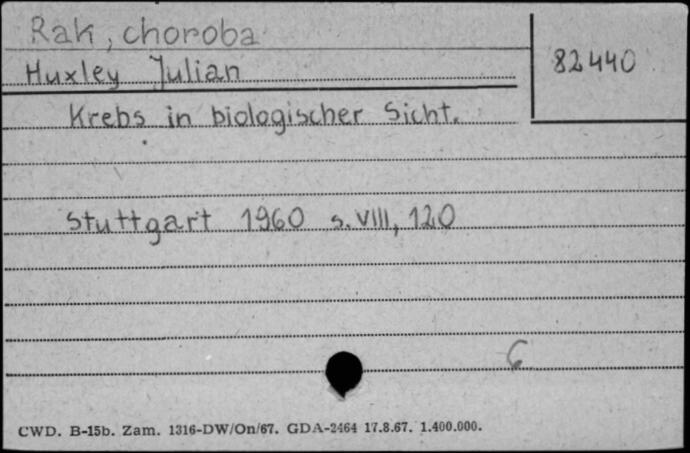 Rak, choroba
82440
Huxley Julian
Krebs in biologischer Sicht.
Stuttgart 1960 s. VIII, 120
6
CWD. B-15b. Zam. 1316-DW/On/67. GDA-2464 17.8.67. 1.400.000.